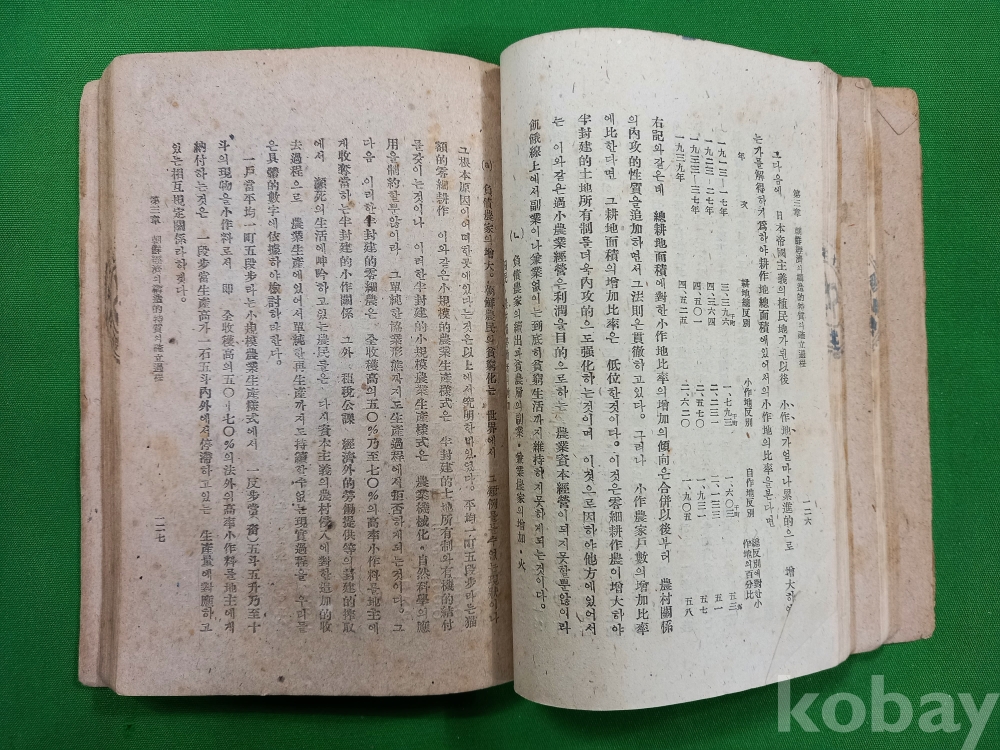 第三章 朝鮮經濟의 構造的特質의 確立過程
一二六
그다음에 日本帝國主義의 植民地가된以後 小作地가얼마나累進的으로 增大하였
는가를解得하기爲하야耕作地總面積에있어서의小作地의比率을본다면
年 次 耕地總反別 小作地反別 自作地反別 總反別에對한小作地의百分比
一九一三—一七年
一九二三—二七年 四、三六四 二、二二三 二、一三一 五一
一九三三—三七年 四、五〇一 二、五七〇 一、九三一 五七
一九三九年 四、五二五 二、六二〇 一、九〇五 五八
右記와같은데 總耕地面積에對한小作地比率의增加의傾向은合併以後부터 農村關係
의內攻的性質을追加하면서그法則은貫徹하고있다。그러나 小作農家戶數의增加比率
에比한다면 그耕地面積의增加比率은 低位한것이다。이것은零細耕作農이增大하야
半封建的土地所有制를더욱內攻的으로強化하는것이며 이것으로因하야他方에있어서
는 이와같은過小農業經營은利潤을目的으로하는 農業資本經營이되지못한뿐않이라
飢餓線上에서副業이나兼業없이는到底히貧窮生活까지維持하지못하게되는것이다。
(ㄴ) 負債農家의續出과貧農層의副業・兼業農家의增加・火
(a) 負債農家의增大。朝鮮農民의貧窮化는 世界에서
그根本原因이어떠한곳에있다는것은以上에서究明한바있었다。平均一町五段步라는猫
額的零細耕作 이와같은小規模的農業生產樣式은 半封建的土地所有制와有機的結付
를갖이는것이나 이러한半封建的小規模農業生產樣式은 農業機械化・自然科學의應
用을制約할뿐않이라 그單純한協業形態까지도生產過程에서拒否하게되는것이다。그
다음 이러한半封建的零細農은 全收穫高의五〇%乃至七〇%의高率小作料를地主에
게收奪當하는半封建的小作關係 그外 租稅公課 經濟外的勞賜提供等의封建的搾取
에서 瀕死의生活에呻吟하고있는農民들은 다시資本主義의農村侵入에對한追加的收
去過程으로 農業生產에있어서單純한再生產까지도持續할수없는現實過程을 우리들
은具體的數字에依據하야檢討하야한다。
一戶當平均一町五段步라는小規模農業生產樣式에서 一反步當 畜의五斗五升乃至十
斗의現物을小作料로서 即 全收穫高의五〇—七〇%의法外의高率小作料를地主에게
納付하는것은 一段步當生產高가一石五斗內外에서停滯하고있는 生產量에對應하고
있는相互規定關係라하겠다。
第三章 朝鮮經濟의構造的特質의確立過程
一二七
kobay